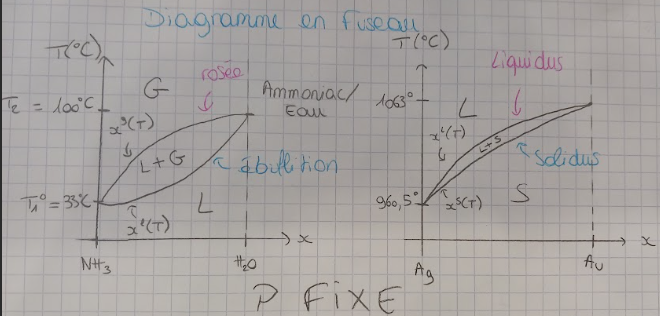 Diagramme en fuseau
T(°C)
G
rosée
Ammoniac/
Eau
T₂ = 100°C
xᵍ(T)
L + G
ébullition
T₁° = 33°C
L
xˡ(T)
x
NH₃
H₂O
T(°C)
Liquidus
1063°
L
xˡ(T)
L+S
solidus
960,5°
xˢ(T)
S
x
Ag
Au
P FiXE